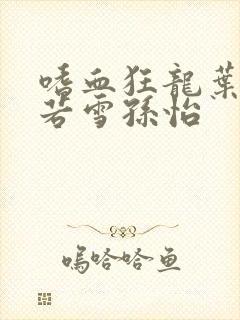 嗜血狂龍葉
若雪孫怡
嗚哈哈鱼